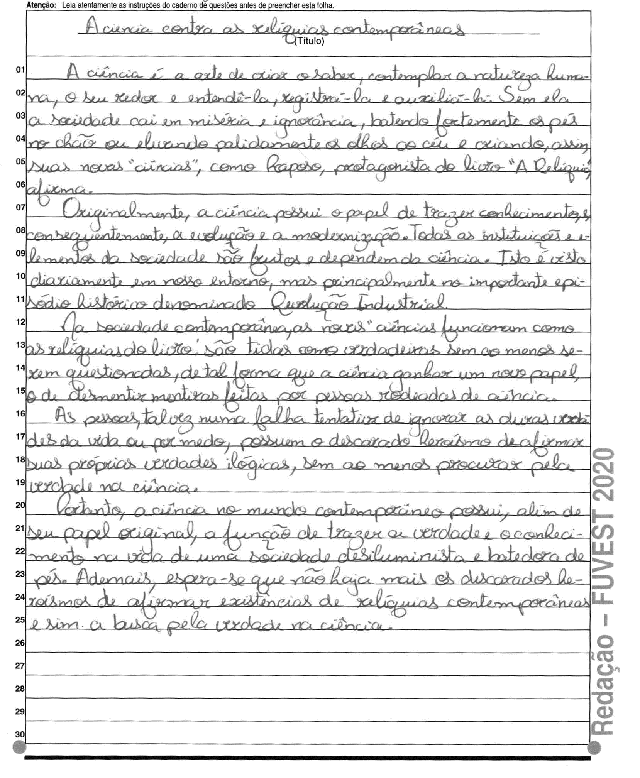 Atenção: Leia atentamente as instruções do caderno de questões antes de preencher esta folha.
A ciência contra as relíquias contemporâneas
(Título)
01 A ciência é a arte de criar o saber, contemplar a natureza huma-
02 na, o seu redor e entendê-la, registrá-la e auxiliá-la. Sem ela
03 a sociedade cai em miséria e ignorância, batendo fortemente os pés
04 no chão ou elevando palidamente os olhos ao céu e criando, assim,
05 suas novas "ciências", como Raposo, protagonista do livro "A Relíquia",
06 afirma.
07 Originalmente, a ciência possui o papel de trazer conhecimento e,
08 consequentemente, a evolução e a modernização. Todas as instituições e e-
09 lementos da sociedade são frutos e dependem da ciência. Isto é visto
10 diariamente em nosso entorno, mas principalmente no importante epi-
11 sódio histórico denominado Revolução Industrial.
12 Na sociedade contemporânea, as novas "ciências funcionam como
13 as relíquias do livro: são tidas como verdadeiras sem ao menos se-
14 rem questionadas, de tal forma que a ciência ganhar um novo papel,
15 o de desmentir mentiras feitas por pessoas rodiadas de ciência.
16 As pessoas, talvez numa falha tentativa de ignorar as duras verda-
17 des da vida ou por medo, possuem o descarado heroísmo de afirmar
18 suas próprias verdades ilógicas, sem ao menos procurar pela
19 verdade na ciência.
20 Portanto, a ciência no mundo contemporâneo possui, além de
21 seu papel original, a função de trazer a verdade e o conheci-
22 mento na vida de uma sociedade desiluminista e batedora de
23 pés. Ademais, espera-se que não haja mais os descarados he-
24 roísmos de afirmar existências de relíquias contemporâneas
25 e sim a busca pela verdade na ciência.
26
27
28
29
30
Redação – FUVEST 2020